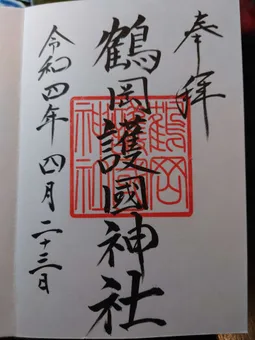 奉拝
鶴岡護國神社
令和四年四月二十三日
鶴岡護國神社